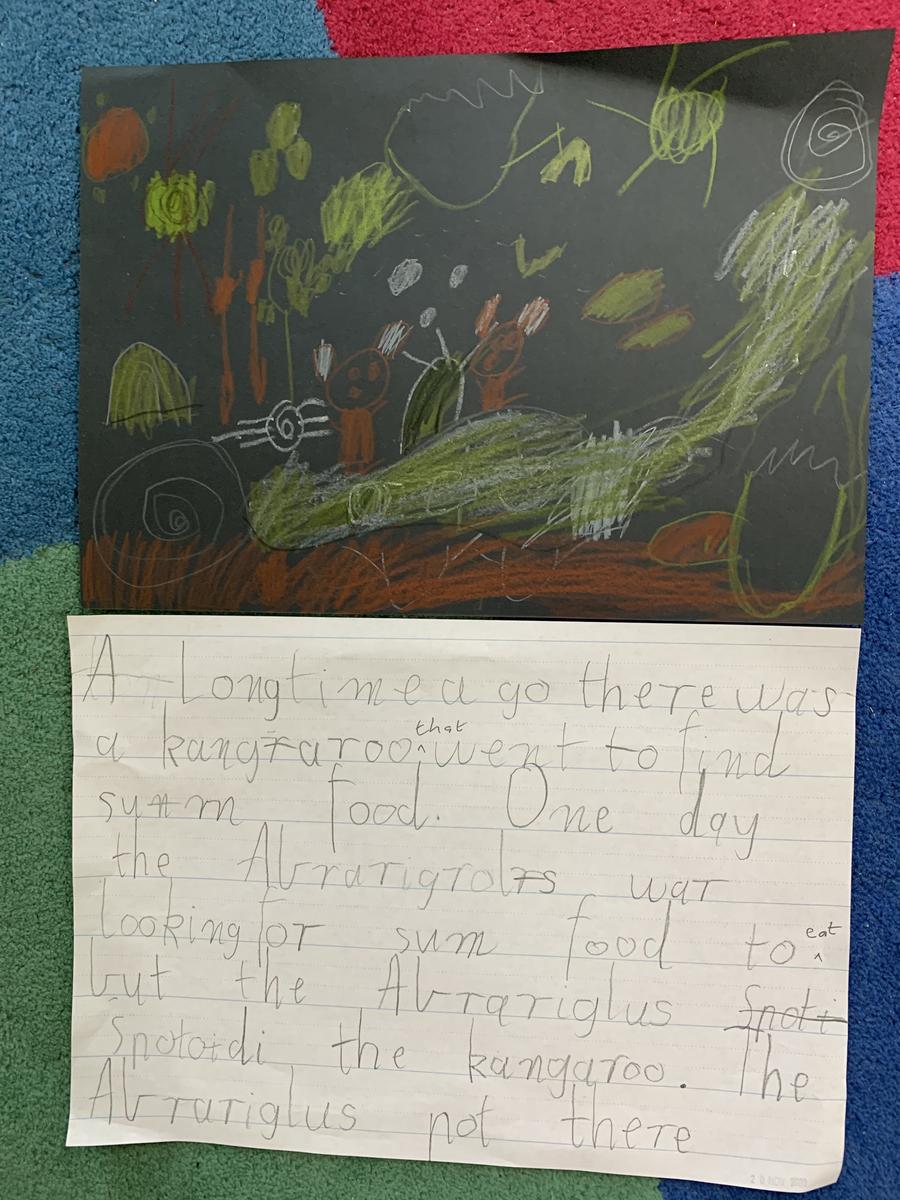 A Longtime a go there was
a kangraroo that went to find
sum food. One day
the Abrarigrols war
looking for sum food to eat
but the Abrariglus Spoti
Spotodi the kangaroo. The
Abrariglus not there
20 NOV 2020